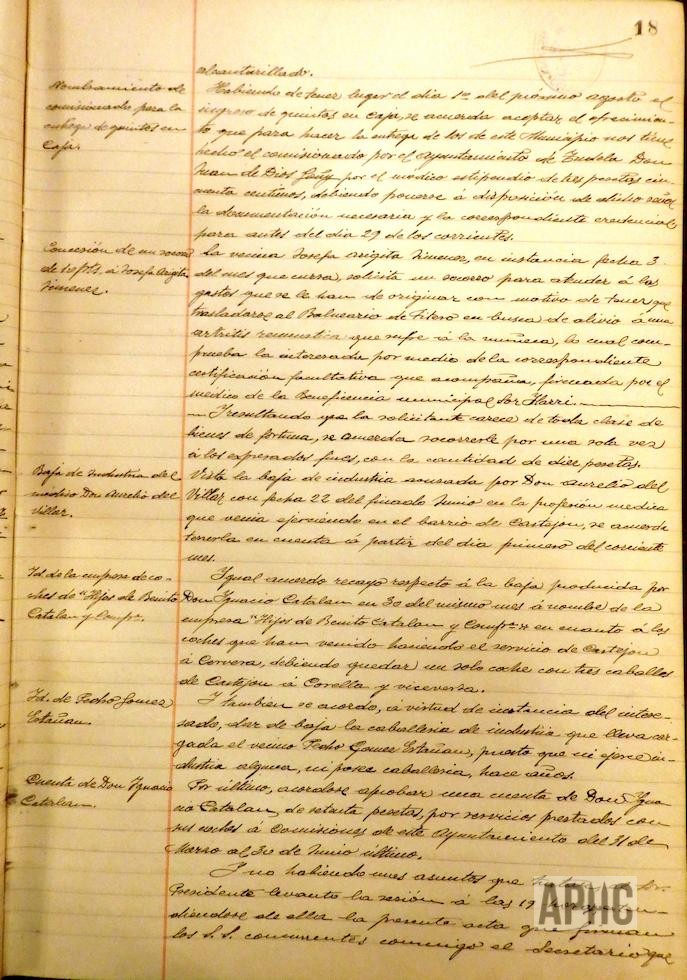 18
alcantarillado.
Nombramiento de
comisionado para la
entrega de quintos en
Caja.
Habiendo de tener lugar el dia 1º del próximo agosto el
ingreso de quintos en Caja, se acuerda aceptar el ofrecimien-
to que para hacer la entrega de los de este Municipio nos tiene
hecho el comisionado por el Ayuntamiento de Tudela Don
Juan de Dios por el módico estipendio de tres pesetas cin-
cuenta centimos, debiendo ponerse á disposición de dicho señor
la documentación necesaria y la correspondiente credencial
para antes del dia 29 de los corrientes.
Concesión de un socorro
de 10 pts. á Josefa Arigita
Jimenez.
La vecina Josefa Arigita Jimenez, en instancia fecha 3
del mes que cursa, solicita un socorro para atender á los
gastos que se le han de originar con motivo de tener que
trasladarse al Balneario de Fitero en busca de alivio á una
artritis reumatica que sufre á la muñeca, lo cual com-
prueba la interesada por medio de la correspondiente
certificación facultativa que acompaña, firmada por el
medico de la Beneficencia municipal Sor
Y resultando que la solicitante carece de toda clase de
bienes de fortuna, se acuerda socorrerle por una sola vez
á los expresados fines, con la cantidad de diez pesetas.
Baja de Industria del
médico Don Aurelio del
Villar.
Vista la baja de industria causada por Don Aurelio del
Villar con fecha 22 del finado Junio en la profesión medica
que venia ejerciendo en el barrio de Castejon, se acuerda
tenerla en cuenta á partir del dia primero del corriente
mes.
Id. de la empresa de co-
ches de "Hijos de Benito
Catalan y Compª.
Igual acuerdo recayo respecto á la baja producida por
Don Ignacio Catalan en 30 del mismo mes á nombre de la
empresa "Hijos de Benito Catalan y Compª" en cuanto á los
coches que han venido haciendo el servicio de Castejon
á Cervera, debiendo quedar un solo coche con tres caballos
de Castejon á Corella y viceversa.
Id. de Pedro Gomez
Estañan.
Y tambien se acordó, á virtud de instancia del intere-
sado, dar de baja la caballeria de industria que lleva car-
gada el vecino Pedro Gomez Estañan, puesto que ni ejerce in-
dustria alguna, ni posee caballeria, hace años.
Cuenta de Don Ignacio
Catalan.
Por último, acordose aprobar una cuenta de Don Igna-
cio Catalan, de setenta pesetas, por servicios prestados con
sus coches á Comisiones de este Ayuntamiento del 31 de
Marzo al 30 de Junio último.
Y no habiendo mas asuntos que tratar el Sr.
Presidente levantó la sesión á las 19 horas
diendose de ella la presente acta que firman
los S.S. concurrentes conmigo el Secretario que
APHC